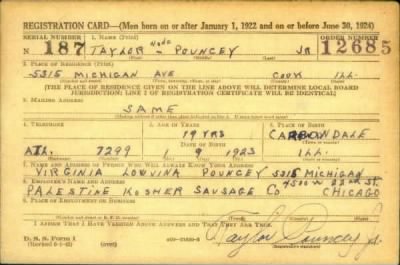 REGISTRATION CARD—(Men born on or after January 1, 1922 and on or before June 30, 1924)
SERIAL NUMBER 1. NAME (Print) ORDER NUMBER
N 187 TAYLOR NONE POUNCEY JR 12685
(First) (Middle) (Last)
2. PLACE OF RESIDENCE (Print)
5315 MICHIGAN AVE COOK ILL.
(Number and street) (Town, township, village, or city) (County) (State)
[THE PLACE OF RESIDENCE GIVEN ON THE LINE ABOVE WILL DETERMINE LOCAL BOARD
JURISDICTION; LINE 2 OF REGISTRATION CERTIFICATE WILL BE IDENTICAL]
3. MAILING ADDRESS
SAME
4. TELEPHONE 5. AGE IN YEARS 6. PLACE OF BIRTH
19 YRS CARBONDALE
DATE OF BIRTH
ATL. 7299 1 9 1923 ILL.
7. NAME AND ADDRESS OF PERSON WHO WILL ALWAYS KNOW YOUR ADDRESS
VIRGINIA LOUVINA POUNCEY 5315 MICHIGAN
8. EMPLOYER'S NAME AND ADDRESS
PALESTINE KOSHER SAUSAGE CO CHICAGO
9. PLACE OF EMPLOYMENT OR BUSINESS
(Number and street or R. F. D. number) (Town) (County) (State)
I AFFIRM THAT I HAVE VERIFIED ABOVE ANSWERS AND THAT THEY ARE TRUE.
D. S. S. Form 1
Taylor Pouncey Jr.
(Registrant's signature)